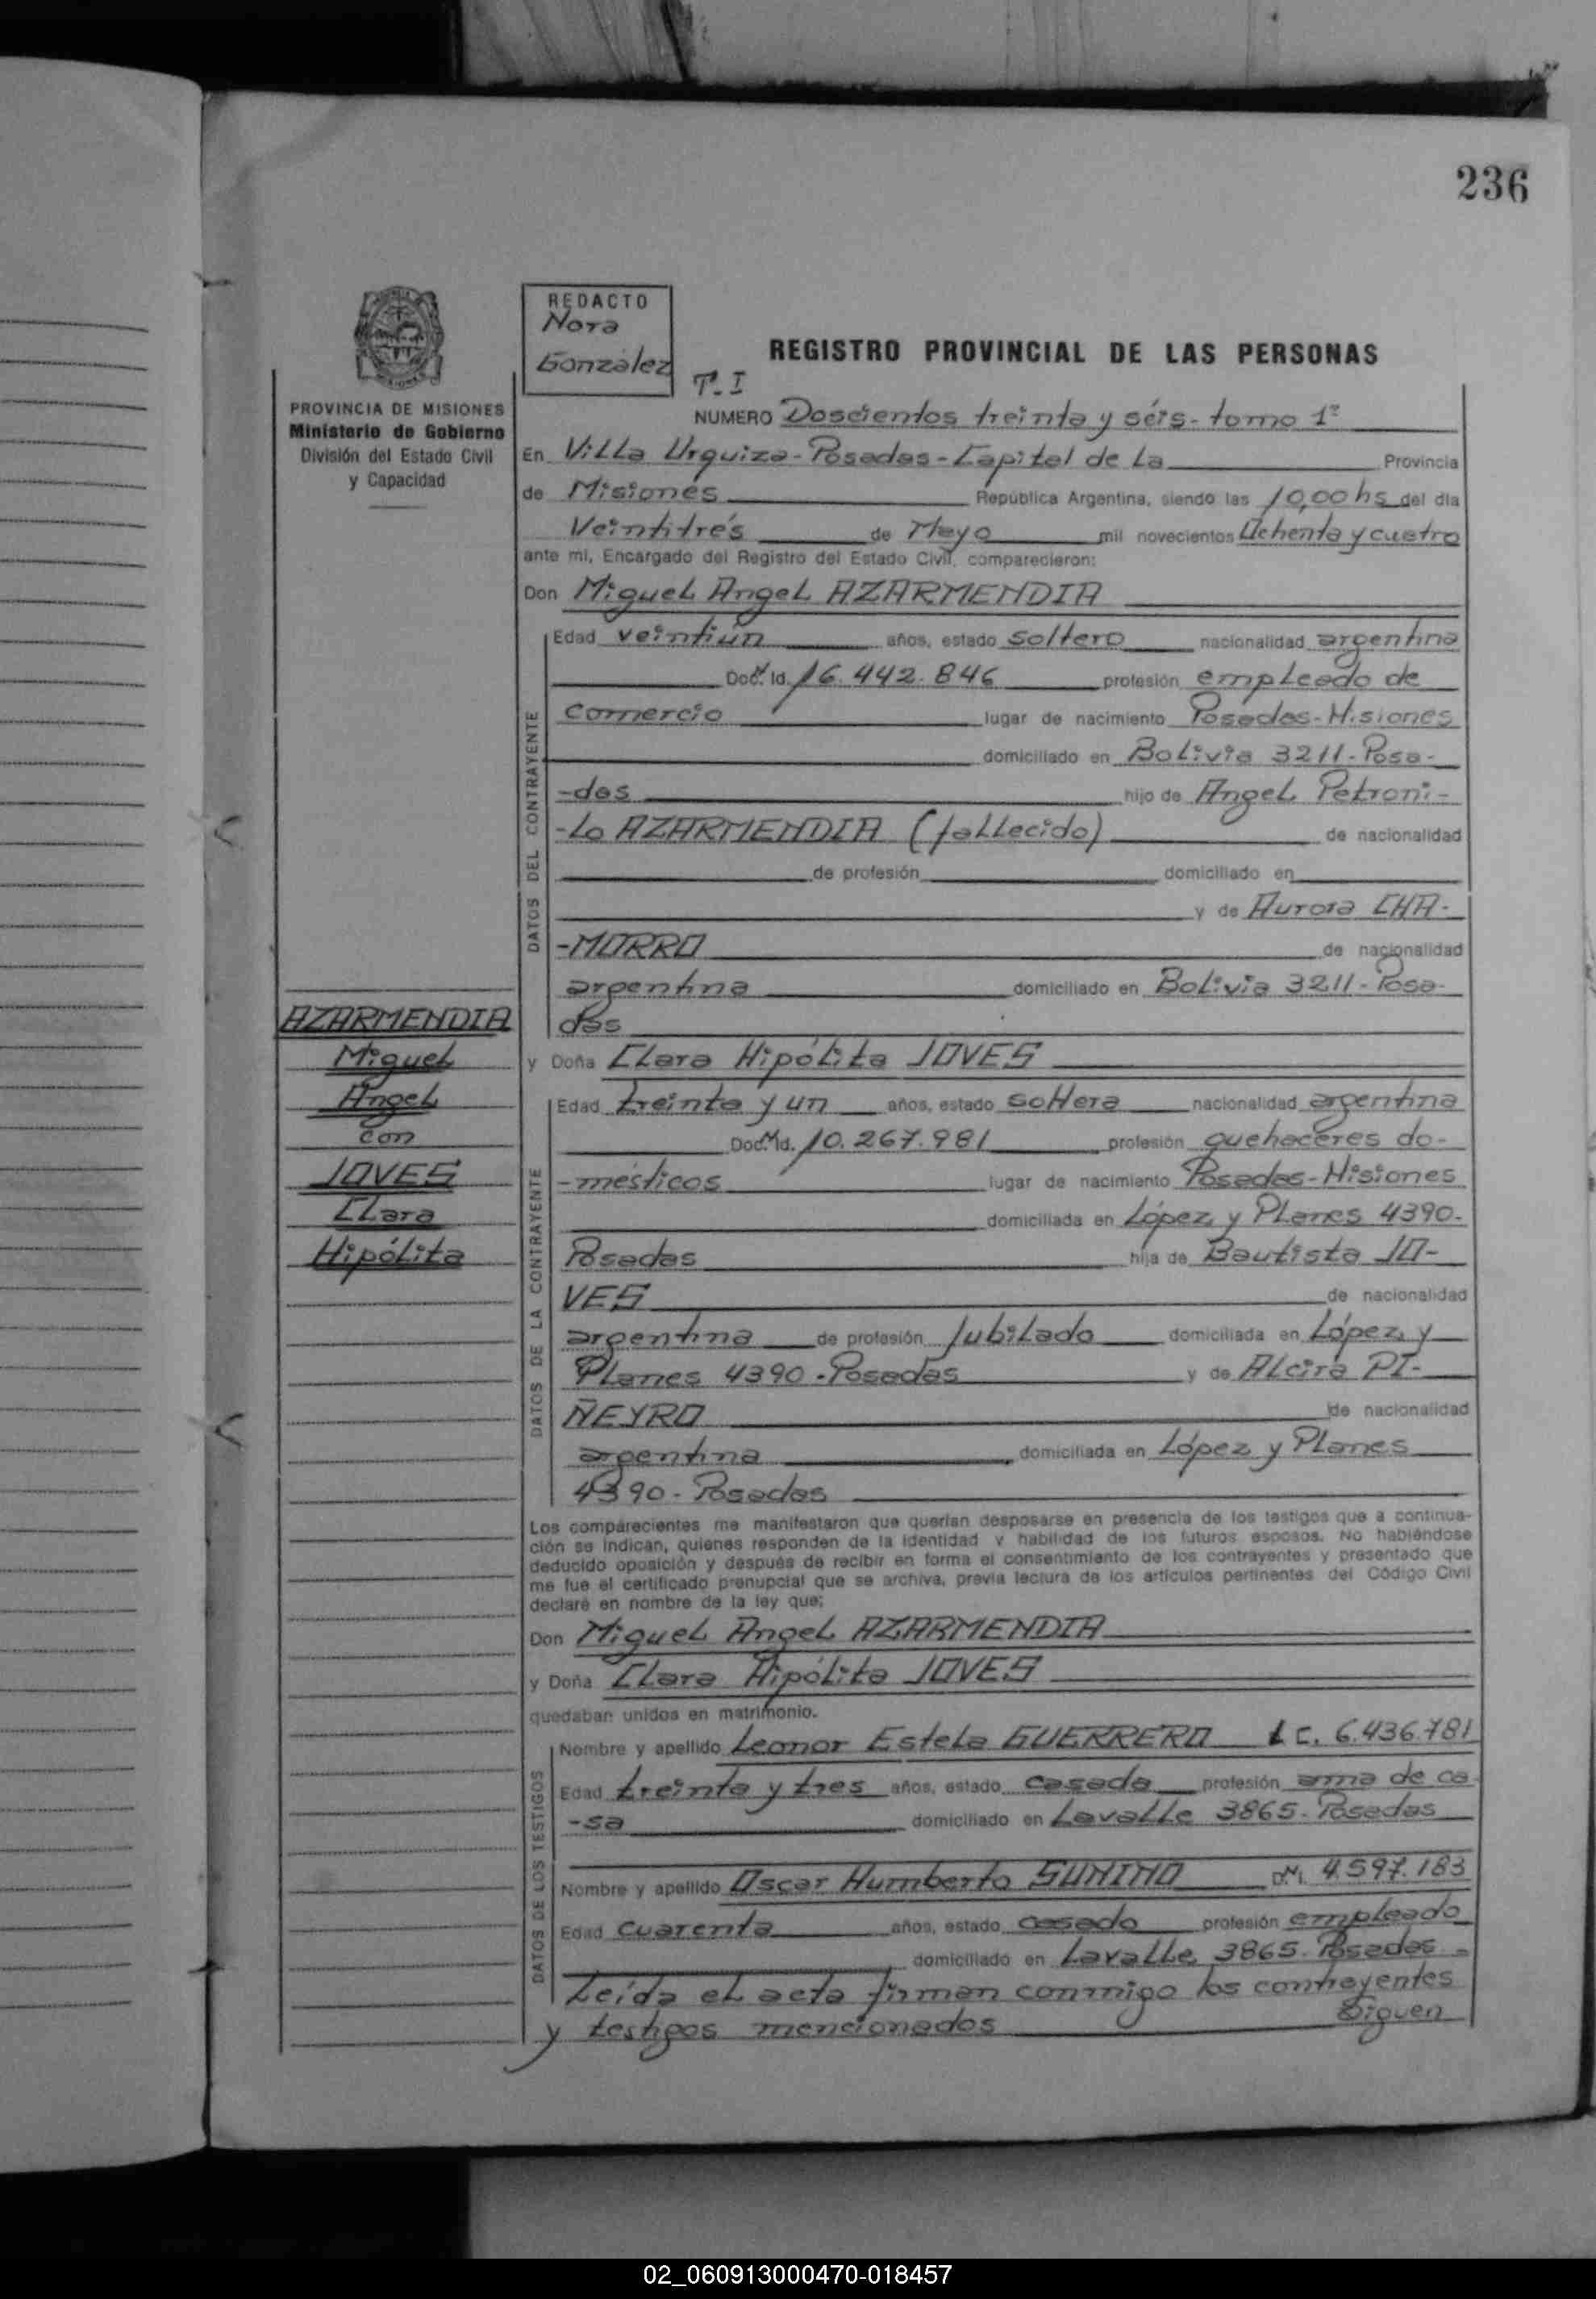 236
REDACTO
Nora
Gonzalez
REGISTRO PROVINCIAL DE LAS PERSONAS
T. I
PROVINCIA DE MISIONES
Ministerio de Gobierno
División del Estado Civil
y Capacidad
NUMERO Doscientos treinta y séis - tomo 1º
En Villa Urquiza - Posadas - Capital de La Provincia
de Misiones República Argentina, siendo las 10,00 hs del día
Veintitrés de Mayo mil novecientos Ochenta y cuatro
ante mi, Encargado del Registro del Estado Civil, comparecieron:
Don Miguel Angel AZARMENDIA
DATOS DEL CONTRAYENTE
Edad veintiún años, estado soltero nacionalidad argentina
Doc. Id. 16.442.846 profesión empleado de
comercio lugar de nacimiento Posadas - Misiones
domiciliado en Bolivia 3211 - Posa-
-das hijo de Angel Petroni-
-Lo AZARMENDIA (fallecido) de nacionalidad
de profesión domiciliado en
y de Aurora CHA-
-MORRO de nacionalidad
argentina domiciliado en Bolivia 3211 - Posa-
das
AZARMENDIA
Miguel
Angel
con
JOVES
Clara
Hipólita
y Doña Clara Hipólita JOVES
DATOS DE LA CONTRAYENTE
Edad treinta y un años, estado soltera nacionalidad argentina
Doc. Id. 10.267.981 profesión quehaceres do-
-mésticos lugar de nacimiento Posadas - Misiones
domiciliada en López y Planes 4390-
Posadas hija de Bautista JO-
VES de nacionalidad
argentina de profesión Jubilado domiciliada en López y
Planes 4390 - Posadas y de Alcira PI-
ÑEYRO de nacionalidad
argentina domiciliada en López y Planes
4390 - Posadas
Los comparecientes me manifestaron que querían desposarse en presencia de los testigos que a continua-
ción se indican, quienes responden de la identidad y habilidad de los futuros esposos. No habiéndose
deducido oposición y después de recibir en forma el consentimiento de los contrayentes y presentado que
me fue el certificado prenupcial que se archiva, previa lectura de los artículos pertinentes del Código Civil
declaré en nombre de la ley que:
Don Miguel Angel AZARMENDIA
y Doña Clara Hipólita JOVES
quedaban unidos en matrimonio.
DATOS DE LOS TESTIGOS
Nombre y apellido Leonor Estela GUERRERO L C. 6.436.781
Edad treinta y tres años, estado casada profesión ama de ca-
-sa domiciliado en Lavalle 3865 - Posadas
Nombre y apellido Oscar Humberto SUNINO 4.597.183
Edad cuarenta años, estado casado profesión empleado
domiciliado en Lavalle 3865 - Posadas -
Leída el acta firman conmigo los contrayentes
y testigos mencionados Siguen
02_060913000470-018457